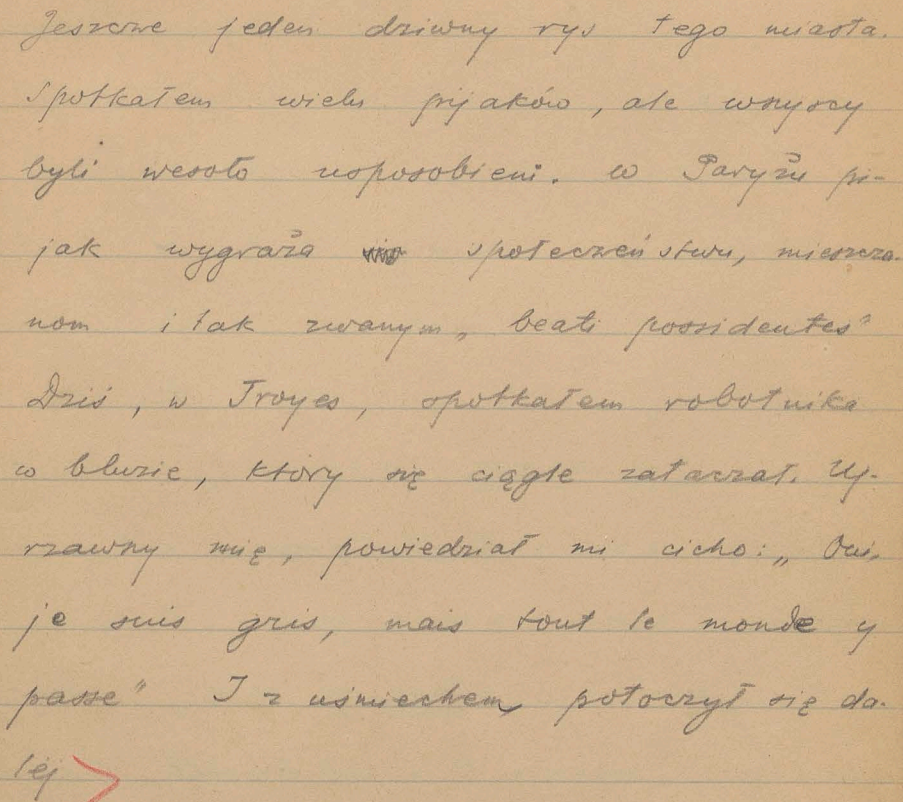 Jeszcze jeden dziwny rys tego miasta.
Spotkałem wielu pijaków, ale wszyscy
byli wesoło usposobieni. W Paryżu pi-
jak wygraża społeczeństwu, mieszcza-
nom i tak zwanym „beati possidentes"
Dziś, w Troyes, spotkałem robotnika
w bluzie, który się ciągle zataczał. Uj-
rzawszy mię, powiedział mi cicho: „Oui,
je suis gris, mais tout le monde y
passe" I z uśmiechem potoczył się da-
lej